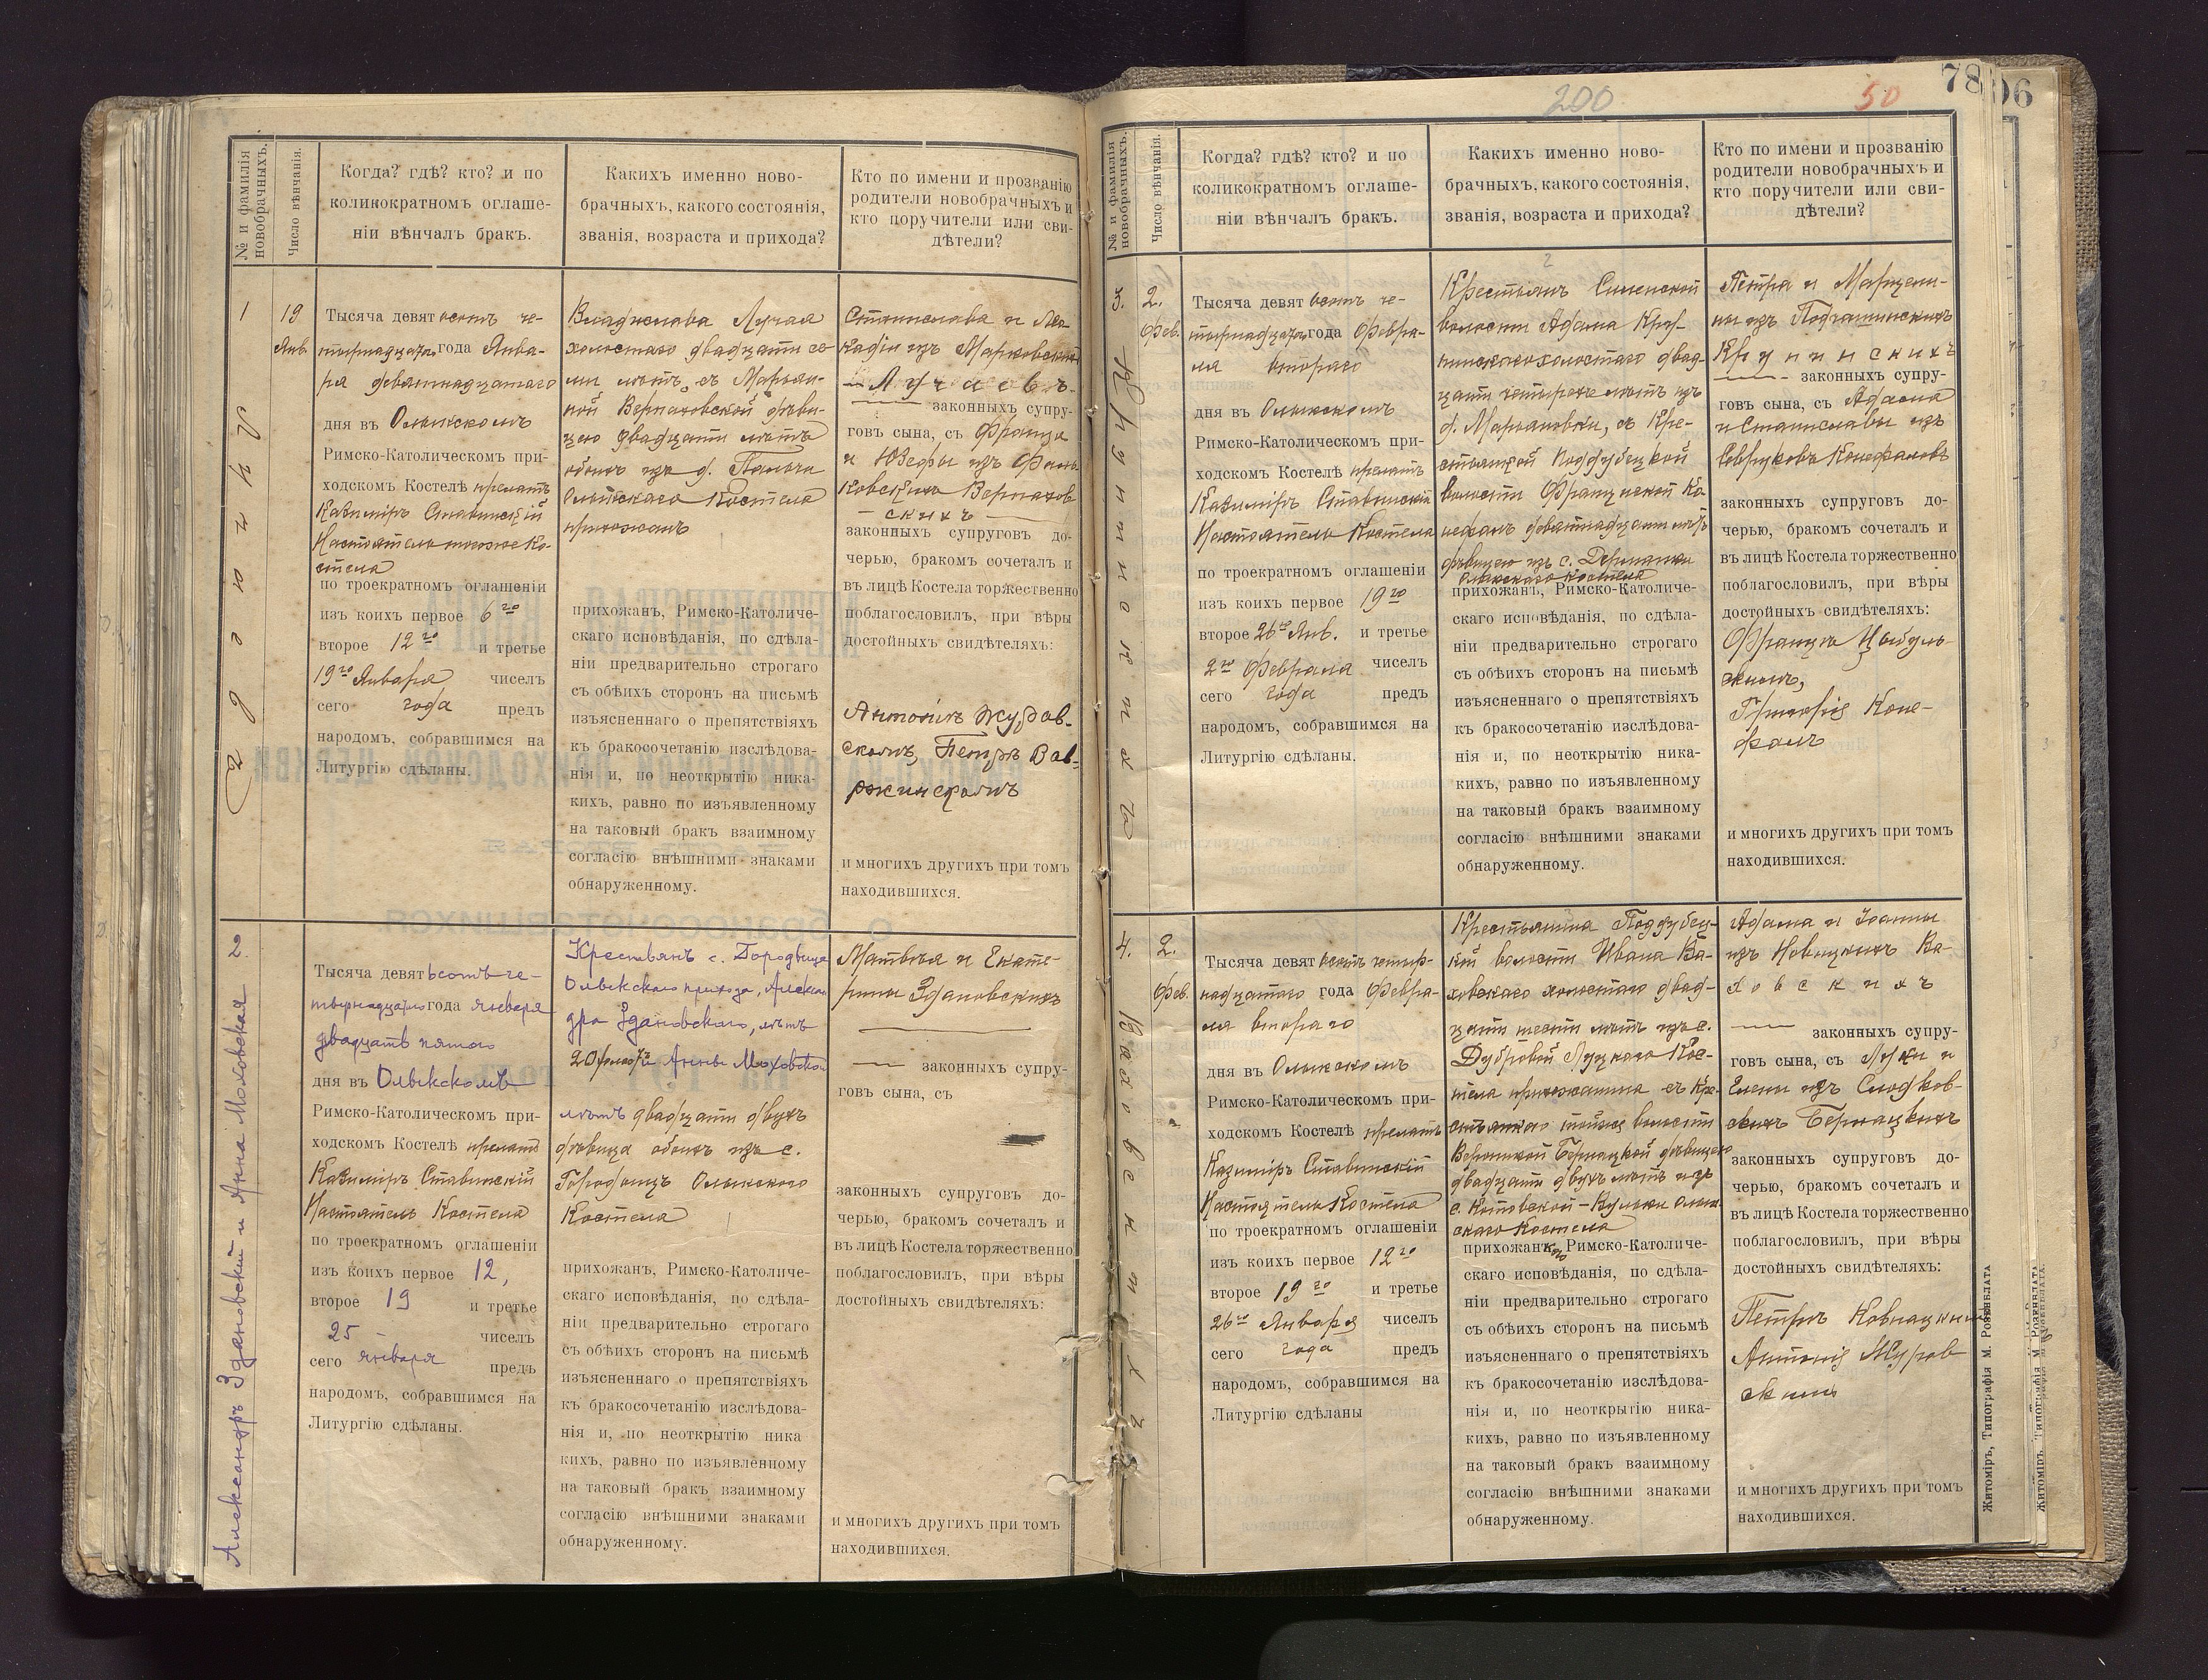 № и фамилія новобрачныхъ.
Число вѣнчанія.
Когда? гдѣ? кто? и по
коликократномъ оглаше-
ніи вѣнчалъ бракъ.
Какихъ именно ново-
брачныхъ, какого состоянія,
званія, возраста и прихода?
Кто по имени и прозванію
родители новобрачныхъ и
кто поручители или сви-
дѣтели?
1
19
Янв.
Тысяча девятьсотъ че-
тырнадцатаго года Янва-
ря девятнадцатаго
дня въ Олыкскомъ
Римско-Католическомъ при-
ходскомъ Костелѣ прелатъ
Казиміръ Ставинскій
Настоятель того же Ко-
стела
по троекратномъ оглашеніи
изъ коихъ первое 6го
второе 12го и третье
19го Января чиселъ
сего года предъ
народомъ, собравшимся на
Литургію сдѣланы.
Владислава Лучая
холостаго двадцати се-
ми лѣтъ, съ Марьян-
ной Верпаховской дѣви-
цею двадцати лѣтъ
обоихъ изъ д. Пальча
Олыкскаго Костела
прихожанъ
прихожанъ, Римско-Католиче-
скаго исповѣданія, по сдѣла-
ніи предварительно строгаго
съ обѣихъ сторонъ на письмѣ
изъясненнаго о препятствіяхъ
къ бракосочетанію изслѣдова-
нія и, по неоткрытію ника-
кихъ, равно по изъявленному
на таковый бракъ взаимному
согласію внѣшними знаками
обнаруженному.
Станислава и Лео-
кадіи изъ Марковскихъ
Лучаевъ
законныхъ супру-
говъ сына, съ Франца
и Юзефы изъ
Верпахов-
скихъ
законныхъ супруговъ до-
черью, бракомъ сочеталъ и
въ лицѣ Костела торжественно
поблагословилъ, при вѣры
достойныхъ свидѣтеляхъ:
Антонiѣ Журав-
скомъ, Петрѣ Вав-
и многихъ другихъ при томъ
находившихся.
2.
Александръ Здановскій и Анна Моховская
Тысяча девятьсотъ че-
тырнадцатаго года января
двадцать пятаго
дня въ Олыкскомъ
Римско-Католическомъ при-
ходскомъ Костелѣ прелатъ
Казиміръ Ставинскій
Настоятель Костела
по троекратномъ оглашеніи
изъ коихъ первое 12,
второе 19 и третье
25 чиселъ
сего января предъ
народомъ, собравшимся на
Литургію сдѣланы.
Крестьянъ с.
Олыкскаго прихода, Алексан-
дра Здановскаго, лѣтъ
20 Анны Моховской
лѣтъ двадцати двухъ
дѣвица обоихъ изъ с.
Городищъ Олыкского
Костела
прихожанъ, Римско-Католиче-
скаго исповѣданія, по сдѣла-
ніи предварительно строгаго
съ обѣихъ сторонъ на письмѣ
изъясненнаго о препятствіяхъ
къ бракосочетанію изслѣдова-
нія и, по неоткрытію ника
кихъ, равно по изъявленному
на таковый бракъ взаимному
согласію внѣшними знаками
обнаруженному.
Матвѣя и Екате-
рины Здановскихъ
законныхъ супру-
говъ сына, съ
законныхъ супруговъ до-
черью, бракомъ сочеталъ и
въ лицѣ Костела торжественно
поблагословилъ, при вѣры
достойныхъ свидѣтеляхъ:
и многихъ другихъ при томъ
находившихся.
200
50
78
06
№ и фамилія новобрачныхъ.
Число вѣнчанія.
Когда? гдѣ? кто? и по
коликократномъ оглаше-
ніи вѣнчалъ бракъ.
Какихъ именно ново-
брачныхъ, какого состоянія,
званія, возраста и прихода?
Кто по имени и прозванію
родители новобрачныхъ и
кто поручители или сви-
дѣтели?
3.
2.
Фев.
Тысяча девятьсотъ че-
тырнадцатаго года Февра-
ля втораго
дня въ Олыкскомъ
Римско-Католическомъ при-
ходскомъ Костелѣ прелатъ
Казиміръ Ставинскій
Настоятель Костела
по троекратномъ оглашеніи
изъ коихъ первое 19го
второе 26го Янв. и третье
2го Февраля чиселъ
сего года предъ
народомъ, собравшимся на
Литургію сдѣланы.
Крестьянъ Силенской
волости Адама Круп-
нинскаго холостаго двад-
цати четырехъ лѣтъ изъ
д. Марьяновки, съ Кре-
стьянкой Поддубецкой
волости
девятнадцати лѣтъ
дѣвицею изъ с. Дерманки
Олыкскаго Костела
прихожанъ, Римско-Католиче-
скаго исповѣданія, по сдѣла-
ніи предварительно строгаго
съ обѣихъ сторонъ на письмѣ
изъясненнаго о препятствіяхъ
къ бракосочетанію изслѣдова-
нія и, по неоткрытію ника-
кихъ, равно по изъявленному
на таковый бракъ взаимному
согласію внѣшними знаками
обнаруженному.
Петра и Марцели-
ны изъ
Крупнинскихъ
законныхъ супру-
говъ сына, съ Адама
и Станиславы изъ
законныхъ супруговъ до-
черью, бракомъ сочеталъ и
въ лицѣ Костела торжественно
поблагословилъ, при вѣры
достойныхъ свидѣтеляхъ:
и многихъ другихъ при томъ
находившихся.
4.
2.
Фев.
Тысяча девятьсотъ четыр-
надцатаго года Февра-
ля втораго
дня въ Олыкскомъ
Римско-Католическомъ при-
ходскомъ Костелѣ прелатъ
Казиміръ Ставинскій
Настоятель Костела
по троекратномъ оглашеніи
изъ коихъ первое 12го
второе 19го и третье
26го Января чиселъ
сего года предъ
народомъ, собравшимся на
Литургію сдѣланы
Крестьянина Поддубец-
кой волости Ивана Ва-
ховскаго холостаго двад-
цати шести лѣтъ изъ с.
Дубровой Луцкаго Кос-
тела прихожанина съ Кре-
стьянкою тойже волости
Вероникой Бернацкой дѣвицею
двадцати двухъ лѣтъ изъ
с. Олык-
скаго Костела
прихожанкою Римско-Католиче-
скаго исповѣданія, по сдѣла-
ніи предварительно строгаго
съ обѣихъ сторонъ на письмѣ
изъясненнаго о препятствіяхъ
къ бракосочетанію изслѣдова-
нія и, по неоткрытію ника-
кихъ, равно по изъявленному
на таковый бракъ взаимному
согласію внѣшними знаками
обнаруженному.
Адама и Іоанны
изъ Новицкихъ Ва-
ховскихъ
законныхъ супру-
говъ сына, съ Луки и
Елены изъ Слодков-
скихъ Бернацкихъ
законныхъ супруговъ до-
черью, бракомъ сочеталъ и
въ лицѣ Костела торжественно
поблагословилъ, при вѣры
достойныхъ свидѣтеляхъ:
Петръ
Антоній Журав
скимъ
и многихъ другихъ при томъ
находившихся.
Житоміръ, Типографія М. Розенблата
Житоміръ. Типографія М. Розенблата.